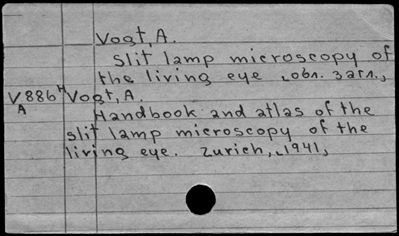 Vogt, A.
Slit lamp microscopy of
the living eye [обл. загл.]
V886H Vogt, A.
A Handbook and atlas of the
slit lamp microscopy of the
living eye. Zurich, [1941]